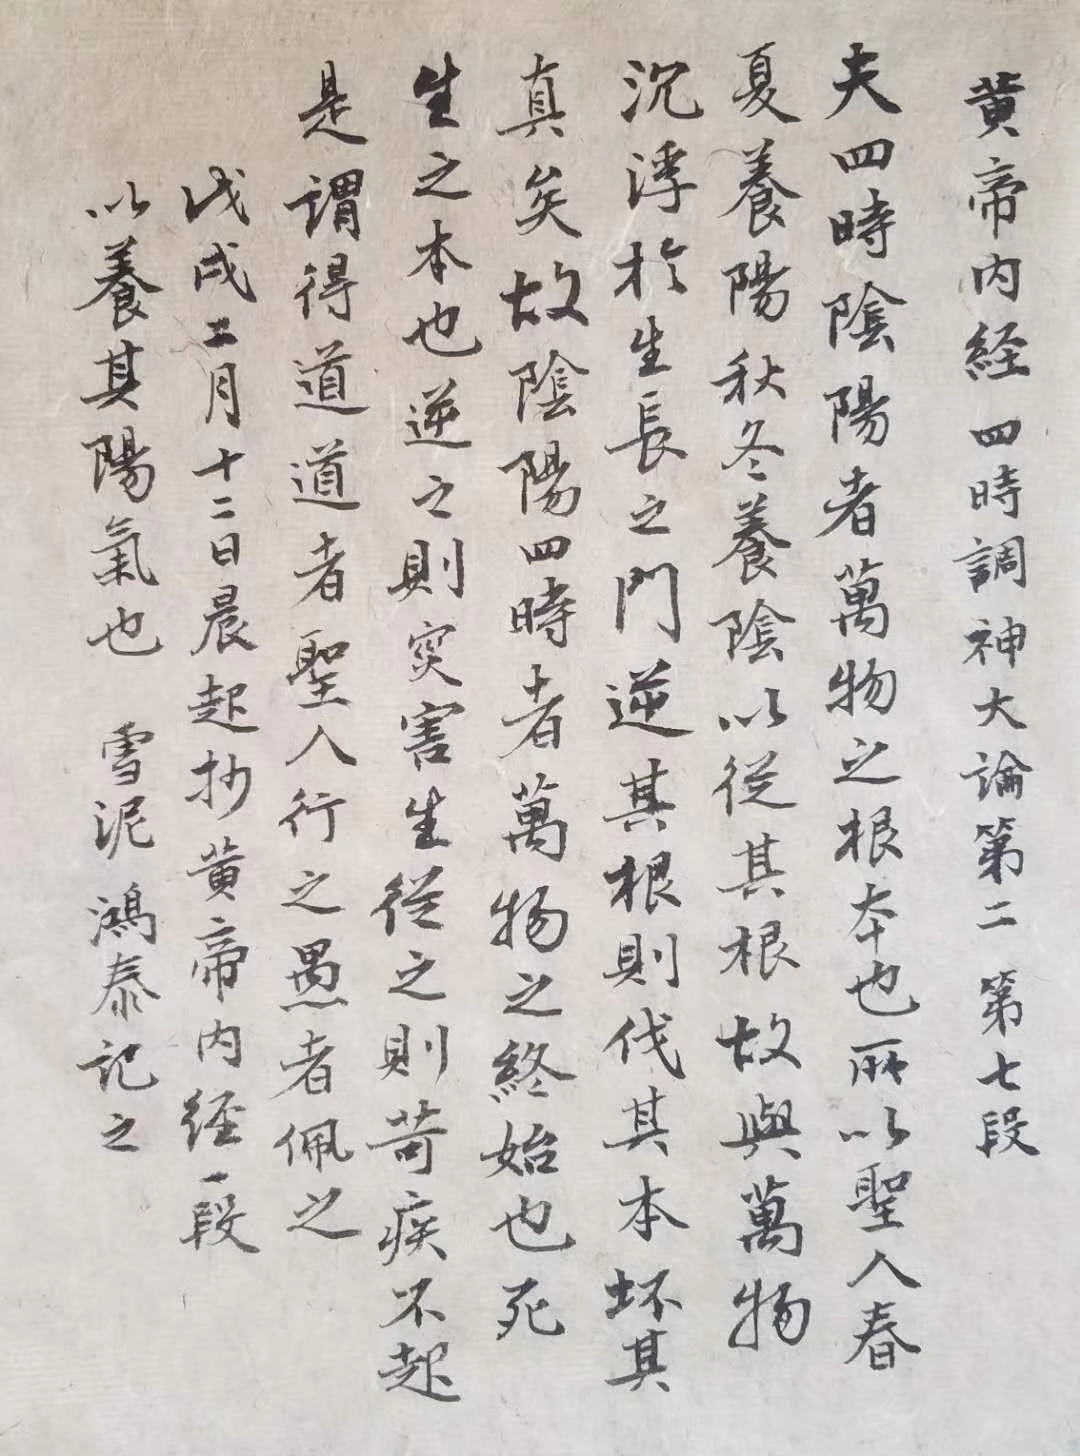 黄帝内経四時調神大論第二 第七段
夫四時陰陽者萬物之根本也所以聖人春
夏養陽秋冬養陰以從其根故與萬物
沉浮於生長之門逆其根則伐其本坏其
真矣故陰陽四時者萬物之終始也死
生之本也逆之則災害生從之則苛疾不起
是謂得道道者聖人行之愚者佩之
戊戌二月十二日晨起抄黄帝内経一段
以養其陽氣也 雪泥鴻泰記之